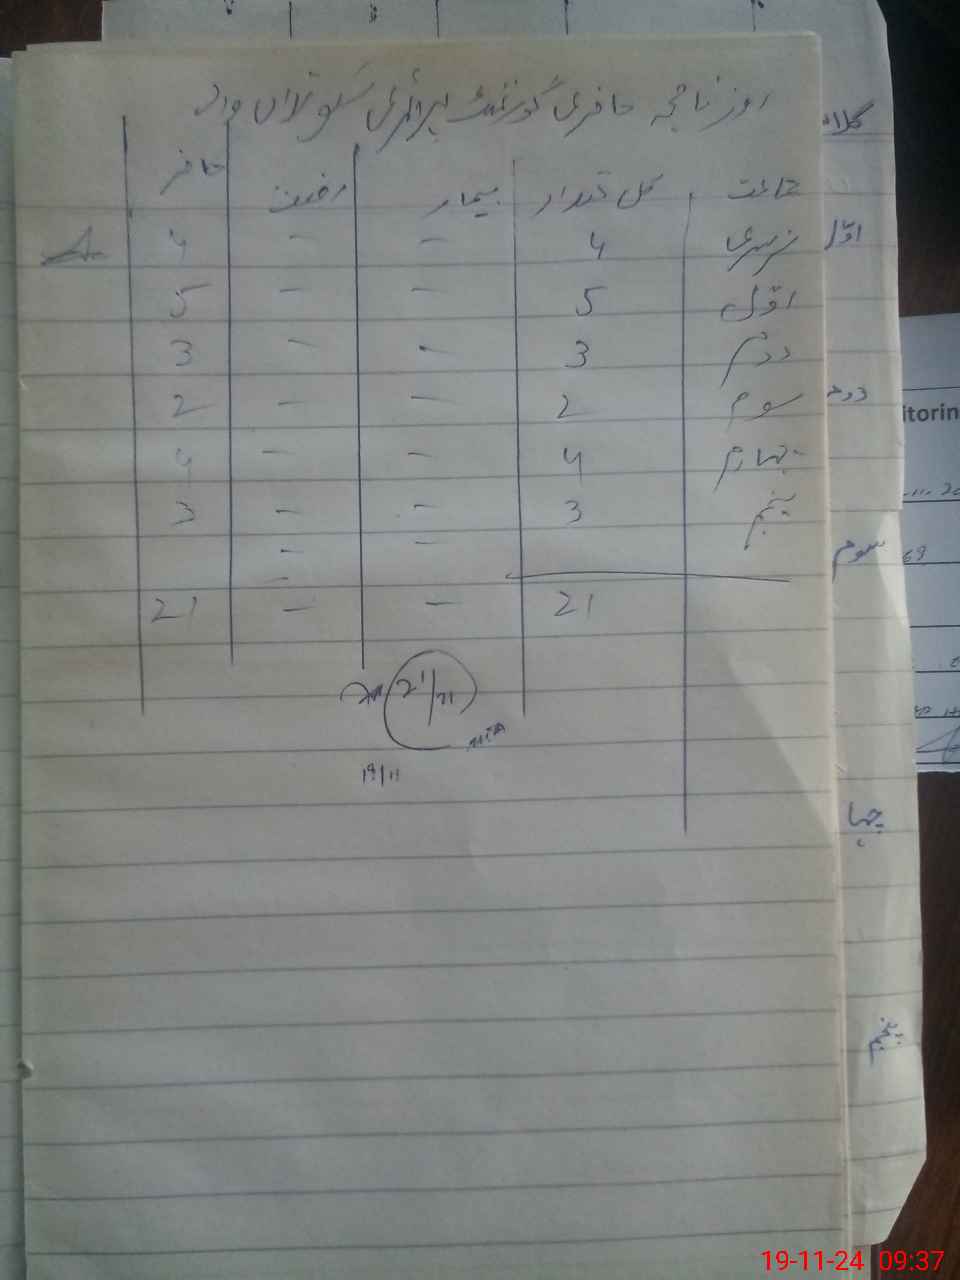 روزنامچہ حاضری گورنمنٹ پرائمری سکول
جماعت کل تعداد بیمار رخصت حاضر
نرسری 4 - - 4
اوّل 5 - - 5
دوئم 3 - - 3
سوم 2 - - 2
چہارم 4 - - 4
پنجم 3 - - 3
- -
-
21 - - 21
21/21
19/11
کلاس
اوّل
دوم
سوم
چہا
پنجم
itorin
69
19-11-24 09:37